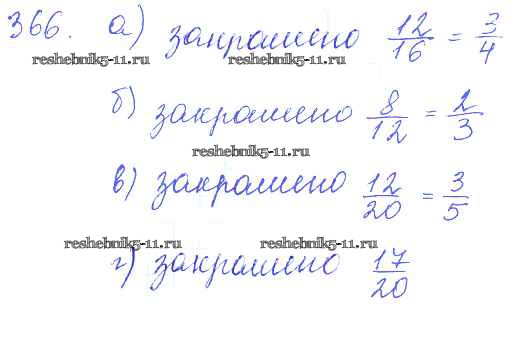 366. а) закрашено 12/16 = 3/4
reshebnik5-11.ru reshebnik5-11.ru
б) закрашено 8/12 = 2/3
reshebnik5-11.ru
в) закрашено 12/20 = 3/5
reshebnik5-11.ru reshebnik5-11.ru
г) закрашено 17/20